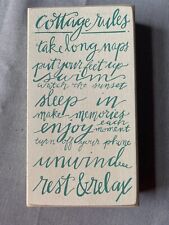 cottage rules
take long naps
put your feet up
swim
watch the sunset
sleep in
make memories
enjoy each moment
turn off your phone
unwind
rest & relax